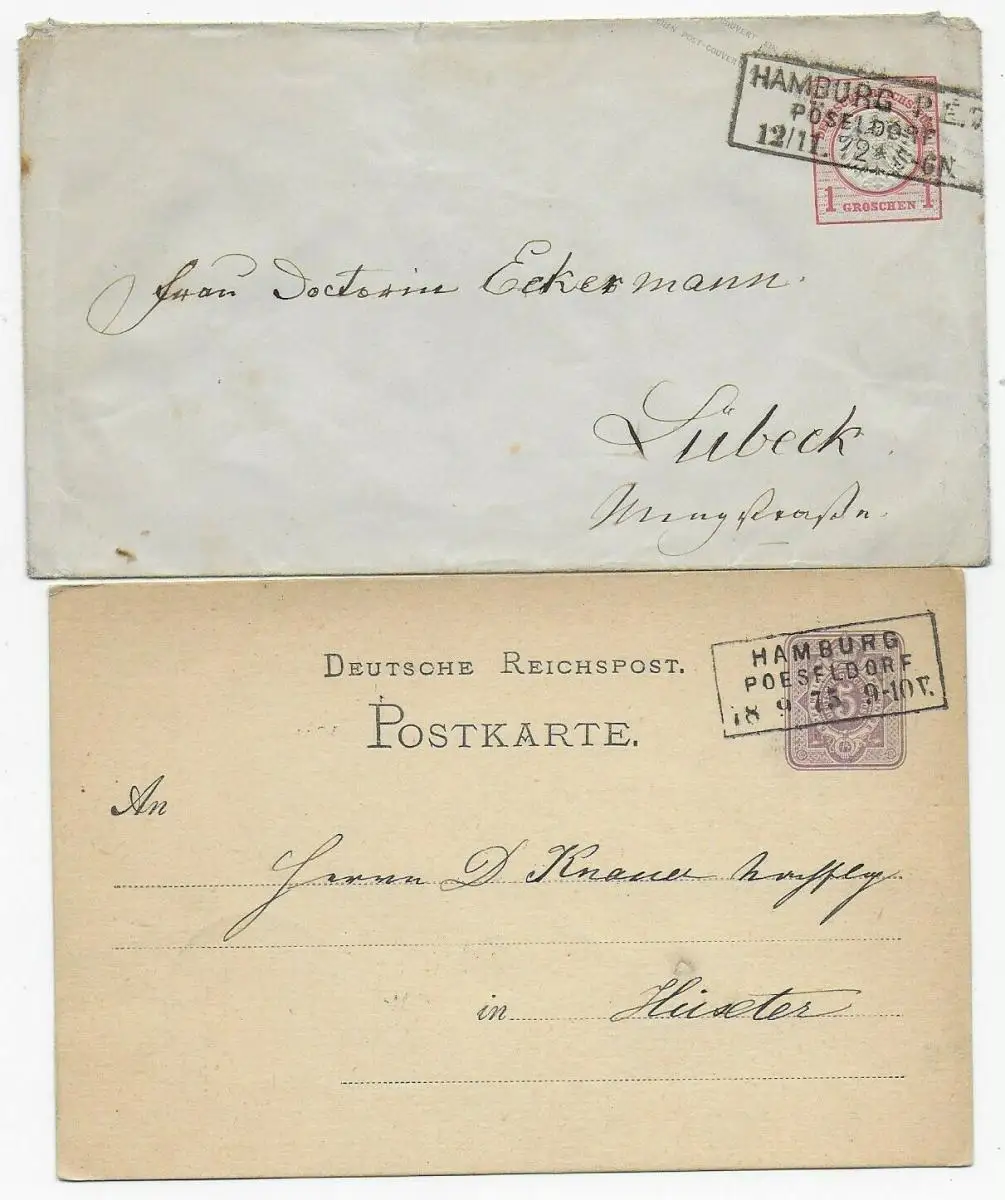 HAMBURG P.E.
PÖSELDORF
12/11. 72 * 5-6N.
1 GROSCHEN 1
Frau Doctorin Eckermann.
Lübeck
Mengstraße.
HAMBURG
POESELDORF
18 9 75 9-10V.
5
DEUTSCHE REICHSPOST.
POSTKARTE.
An
Herrn D Knauer Nachflg
in Hüxter